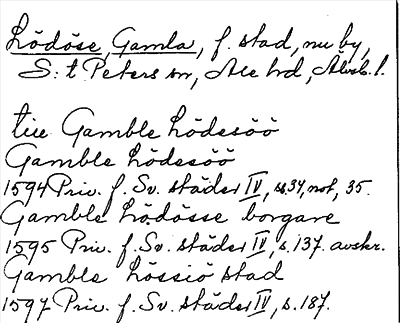 Lödöse, Gamla, f. stad, nu by,
S:t Peters sn, Ale hd, Älvsb. l.
till Gamble Lödesöö
Gamble Lödesöö
1594 Priv. f. Sv. städer IV, s. 34, not, 35.
Gamble Lödösse borgare
1595 Priv. f. Sv. städer IV, s. 137. avskr.
Gamble Lössiö stad
1597 Priv. f. Sv. städer IV, s. 187.